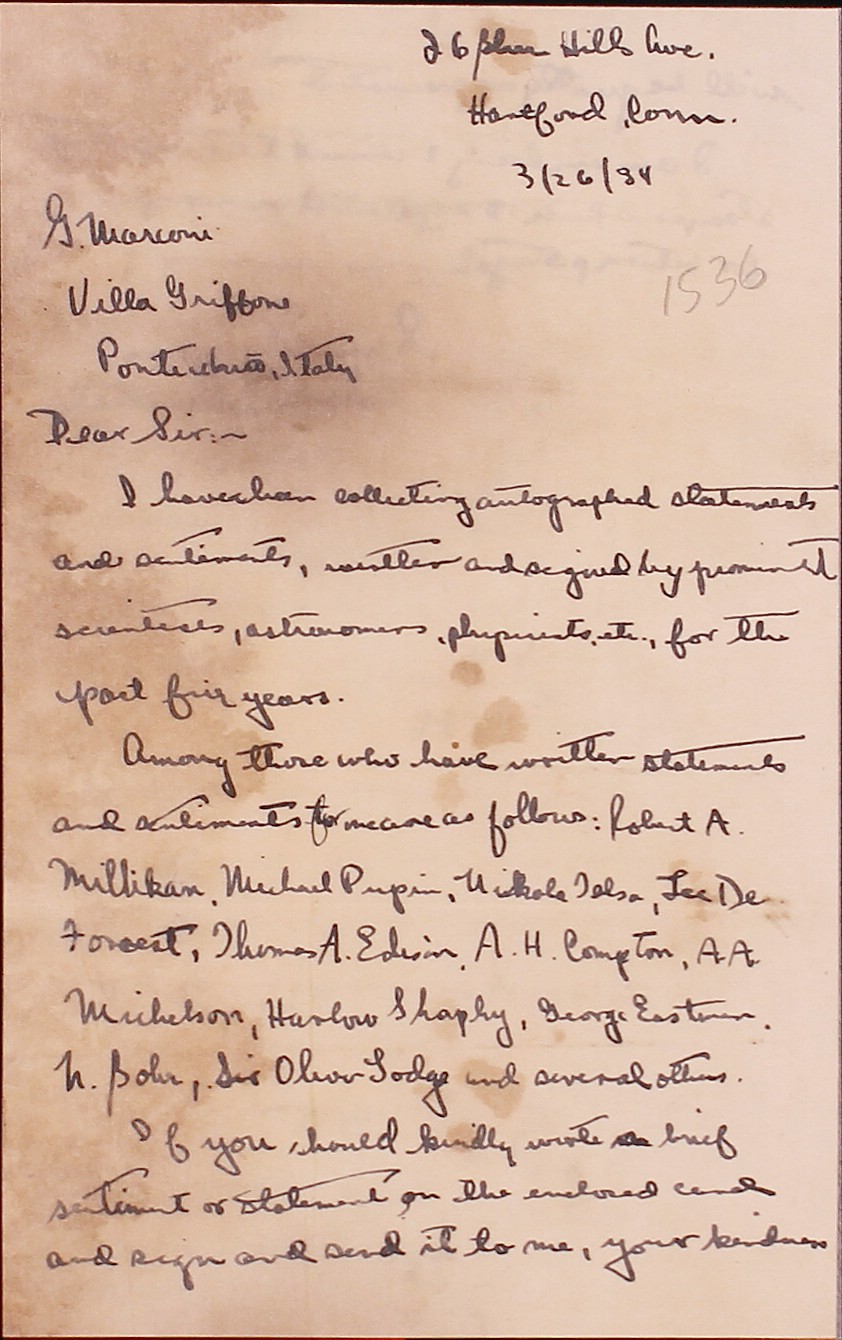 26 Blue Hills Ave.
Hartford, Conn.
3/26/34
G. Marconi
1536
Villa Griffone
Pontecchio, Italy
Dear Sir:~
I have been collecting autographed statements
and sentiments, written and signed by prominent
scientists, astronomers, physicists, etc., for the
past five years.
Among those who have written statements
and sentiments for me are as follows: Robert A.
Millikan, Michael Pupin, Nikola Telsa, Lee De
Forrest, Thomas A. Edison, A. H. Compton, A A
Michelson, Harlow Shaply, George Eastman,
N. Bohr, Sir Oliver Lodge and several others.
If you should kindly write a brief
sentiment or statement on the enclosed card
and sign and send it to me, your kindness